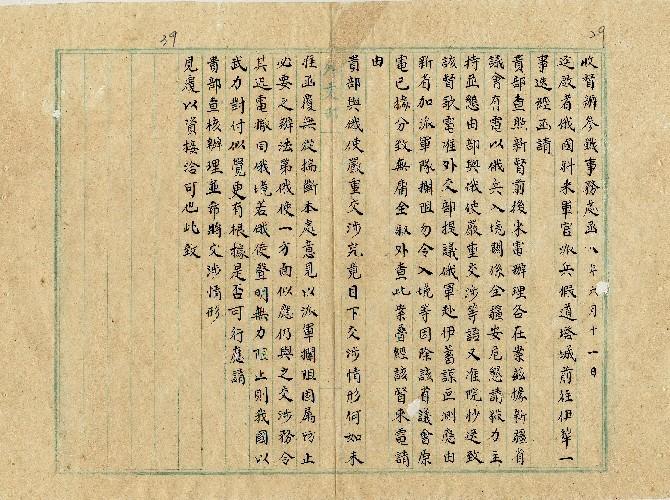 29
39
收督辦參戰事務處函 八年六月十一日
逕啟者俄國科米軍官派兵假道塔城前往伊犂一
事迭經函請
貴部查照新督前後來電辦理各在案茲據新疆省
議會有電以俄兵入境關係全疆安危懇請毅力主
持並懇由部與俄使嚴重交涉等語又准院抄送致
該督歌電准外交部提議俄軍赴伊蓄謀叵測應由
新省加派軍隊攔阻勿令入境等因除該省議會原
電已據分致無庸全叙外查此案曾經該督來電請
由
貴部與俄使嚴重交涉究竟目下交涉情形何如未
准函覆無從揣斷本處意見以派軍攔阻固屬防止
必要之辦法第俄使一方面似應仍與之交涉務令
其迅電撤回俄境若俄使聲明無力阻止則我國以
武力對付似覺更有根據是否可行應請
貴部查核辦理並希將交涉情形
見覆以資接洽可也此致